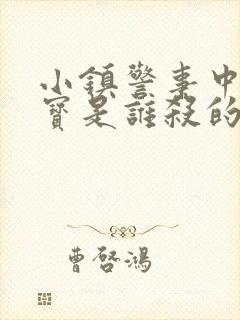 小鎮警事中
寶是誰殺的
曹啓鴻